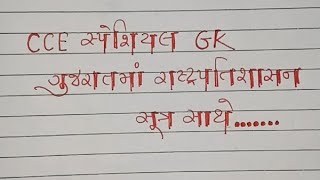 CCE સ્પેશિયલ GK
ગુજરાતમાં રાષ્ટ્રપતિશાસન
સૂત્ર સાથે.......